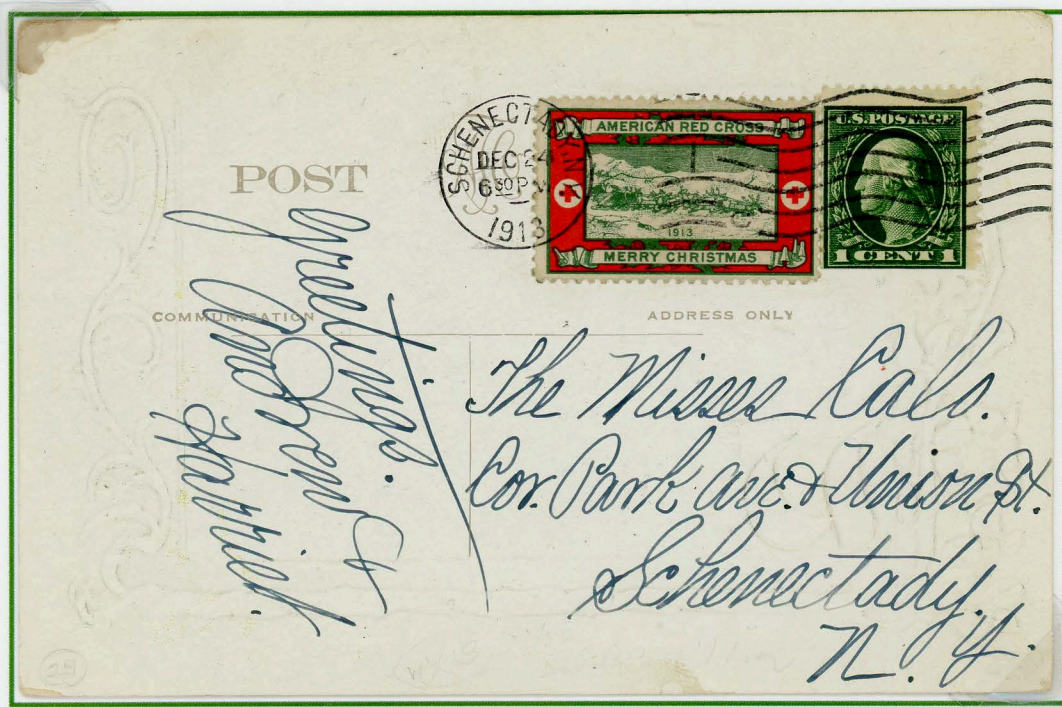 SCHENECTADY
DEC 24
6 30 P M
1913
AMERICAN RED CROSS
1913
MERRY CHRISTMAS
U.S. POSTAGE
1 CENT 1
POST
COMMUNICATION
ADDRESS ONLY
Greetings.
Harriet.
The Misses Calo.
Cor. Park ave. & Union St.
Schenectady.
N. Y.
29